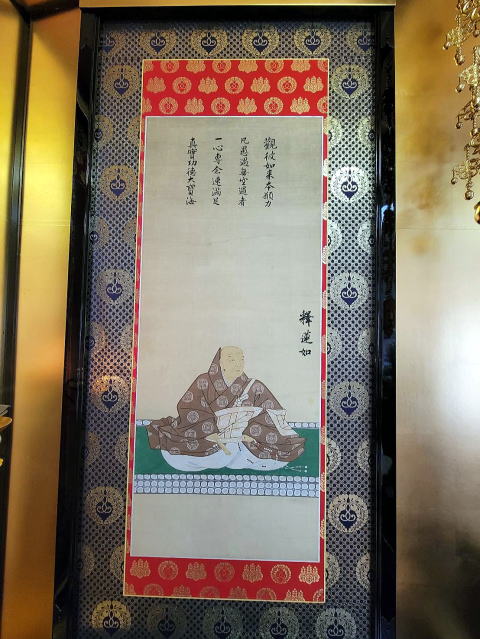 觀彼如来本願力
凡愚遇無空過者
一心専念速満足
真實功徳大寶海
釋蓮如